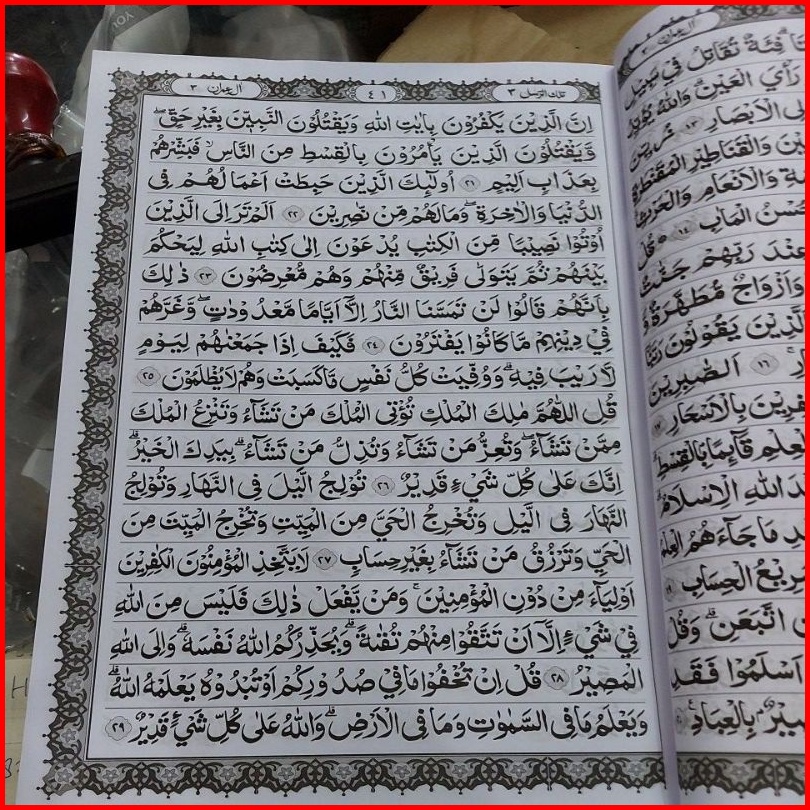 تلك الرسل ٣
٤١
اٰل عمرٰن ٣
اِنَّ الَّذِيْنَ يَكْفُرُوْنَ بِاٰيٰتِ اللّٰهِ وَيَقْتُلُوْنَ النَّبِيّٖنَ بِغَيْرِ حَقٍّ ۙ
وَّيَقْتُلُوْنَ الَّذِيْنَ يَاْمُرُوْنَ بِالْقِسْطِ مِنَ النَّاسِ ۙ فَبَشِّرْهُمْ
بِعَذَابٍ اَلِيْمٍ ٢١ اُولٰٓئِكَ الَّذِيْنَ حَبِطَتْ اَعْمَالُهُمْ فِى
الدُّنْيَا وَالْاٰخِرَةِ ۖ وَمَا لَهُمْ مِّنْ نّٰصِرِيْنَ ٢٢ اَلَمْ تَرَ اِلَى الَّذِيْنَ
اُوْتُوْا نَصِيْبًا مِّنَ الْكِتٰبِ يُدْعَوْنَ اِلٰى كِتٰبِ اللّٰهِ لِيَحْكُمَ
بَيْنَهُمْ ثُمَّ يَتَوَلّٰى فَرِيْقٌ مِّنْهُمْ وَهُمْ مُّعْرِضُوْنَ ٢٣ ذٰلِكَ
بِاَنَّهُمْ قَالُوْا لَنْ تَمَسَّنَا النَّارُ اِلَّآ اَيَّامًا مَّعْدُوْدٰتٍ ۖ وَّغَرَّهُمْ
فِيْ دِيْنِهِمْ مَّا كَانُوْا يَفْتَرُوْنَ ٢٤ فَكَيْفَ اِذَا جَمَعْنٰهُمْ لِيَوْمٍ
لَّا رَيْبَ فِيْهِ ۗ وَوُفِّيَتْ كُلُّ نَفْسٍ مَّا كَسَبَتْ وَهُمْ لَا يُظْلَمُوْنَ ٢٥
قُلِ اللّٰهُمَّ مٰلِكَ الْمُلْكِ تُؤْتِى الْمُلْكَ مَنْ تَشَآءُ وَتَنْزِعُ الْمُلْكَ
مِمَّنْ تَشَآءُ ۖ وَتُعِزُّ مَنْ تَشَآءُ وَتُذِلُّ مَنْ تَشَآءُ ۗ بِيَدِكَ الْخَيْرُ ۗ
اِنَّكَ عَلٰى كُلِّ شَيْءٍ قَدِيْرٌ ٢٦ تُوْلِجُ الَّيْلَ فِى النَّهَارِ وَتُوْلِجُ
النَّهَارَ فِى الَّيْلِ وَتُخْرِجُ الْحَيَّ مِنَ الْمَيِّتِ وَتُخْرِجُ الْمَيِّتَ مِنَ
الْحَيِّ وَتَرْزُقُ مَنْ تَشَآءُ بِغَيْرِ حِسَابٍ ٢٧ لَا يَتَّخِذِ الْمُؤْمِنُوْنَ الْكٰفِرِيْنَ
اَوْلِيَآءَ مِنْ دُوْنِ الْمُؤْمِنِيْنَ ۚ وَمَنْ يَّفْعَلْ ذٰلِكَ فَلَيْسَ مِنَ اللّٰهِ
فِيْ شَيْءٍ اِلَّآ اَنْ تَتَّقُوْا مِنْهُمْ تُقٰىةً ۗ وَيُحَذِّرُكُمُ اللّٰهُ نَفْسَهٗ ۗ وَاِلَى اللّٰهِ
الْمَصِيْرُ ٢٨ قُلْ اِنْ تُخْفُوْا مَا فِيْ صُدُوْرِكُمْ اَوْ تُبْدُوْهُ يَعْلَمْهُ اللّٰهُ ۗ
وَيَعْلَمُ مَا فِى السَّمٰوٰتِ وَمَا فِى الْاَرْضِ ۗ وَاللّٰهُ عَلٰى كُلِّ شَيْءٍ قَدِيْرٌ ٢٩
اٰل عمرٰن ٣
فِئَةٌ تُقَاتِلُ فِيْ سَبِيْلِ
رَاْيَ الْعَيْنِ ۗ وَاللّٰهُ يُؤَيِّدُ
الْاَبْصَارِ ١٣ زُيِّنَ
وَالْقَنَاطِيْرِ الْمُقَنْطَرَةِ
وَالْاَنْعَامِ وَالْحَرْثِ
حُسْنُ الْمَاٰبِ ١٤ قُلْ
عِنْدَ رَبِّهِمْ جَنّٰتٌ
وَاَزْوَاجٌ مُّطَهَّرَةٌ
الَّذِيْنَ يَقُوْلُوْنَ رَبَّنَآ
١٦ اَلصّٰبِرِيْنَ
بِالْاَسْحَارِ ١٧
قَآئِمًا بِالْقِسْطِ
اللّٰهِ الْاِسْلَامُ
مَا جَآءَهُمُ الْعِلْمُ
الْحِسَابِ ١٩
اتَّبَعَنِ ۗ وَقُلْ
اَسْلَمُوْا فَقَدِ
بِالْعِبَادِ